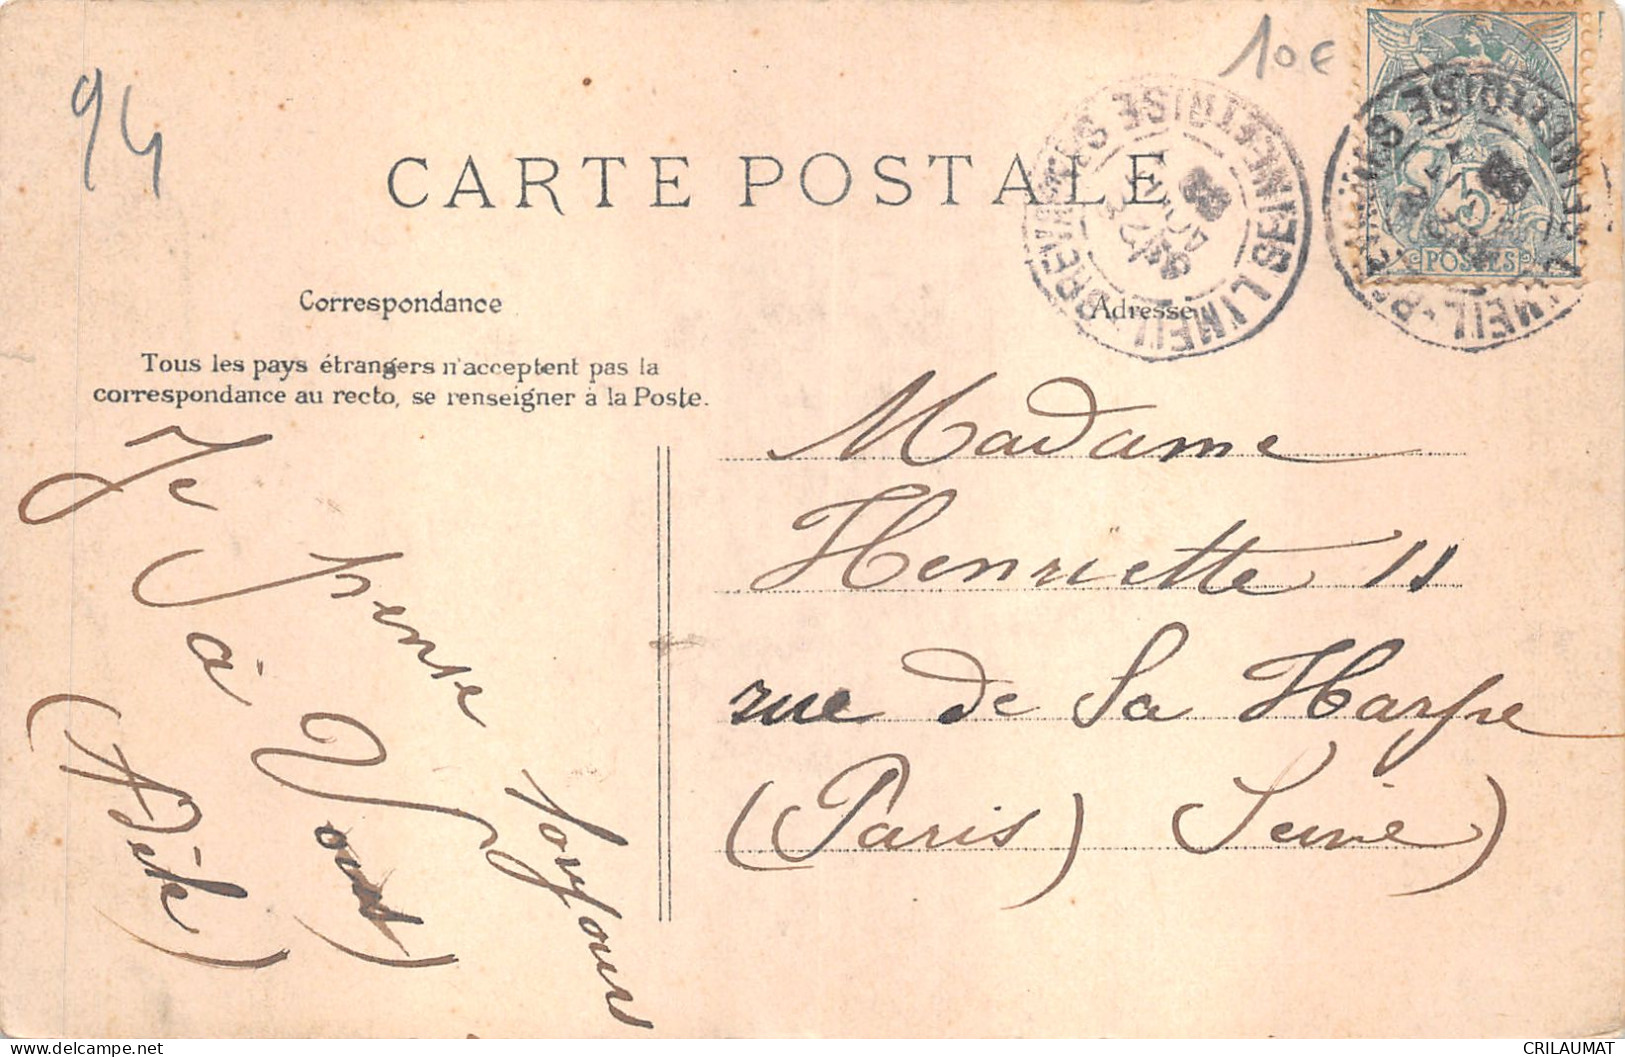 94
10€
CARTE POSTALE
LIMEIL-BREVANNES SEINE ET OISE
5
POSTES
Correspondance
Adresse
Tous les pays étrangers n'acceptent pas la
correspondance au recto, se renseigner à la Poste.
Je pense toujours
à Vous)
(
Madame
Henriette 11
rue de La Harpe
(Paris) Seine)
CRILAUMAT